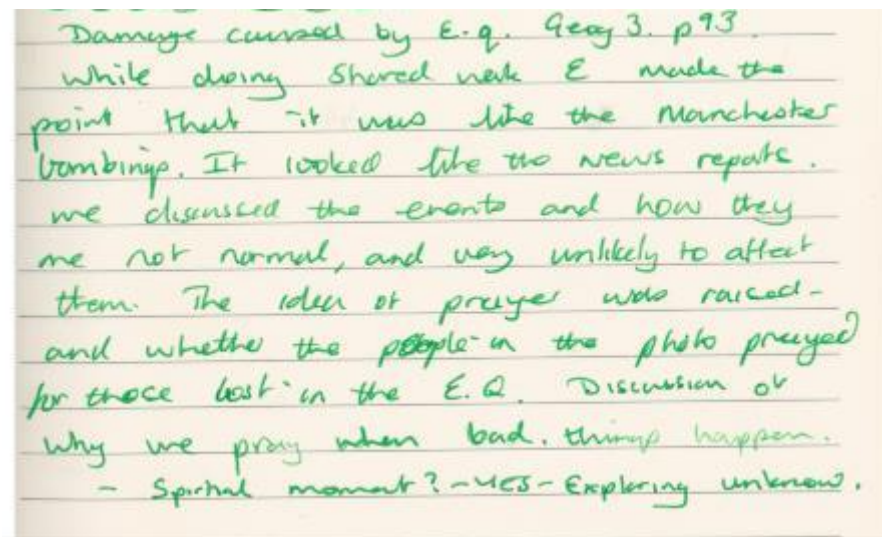 Damage caused by E.q. Geog 3. p93.
While doing Shared work E made the
point that it was like the Manchester
bombings. It looked like the News reports.
we discussed the events and how they
are not normal, and very unlikely to affect
them. The idea of prayer was raised -
and whether the people in the photo prayed
for those lost in the E.Q. Discussion of
why we pray when bad things happen.
- Spirtual moment? - YES - Exploring unknow.